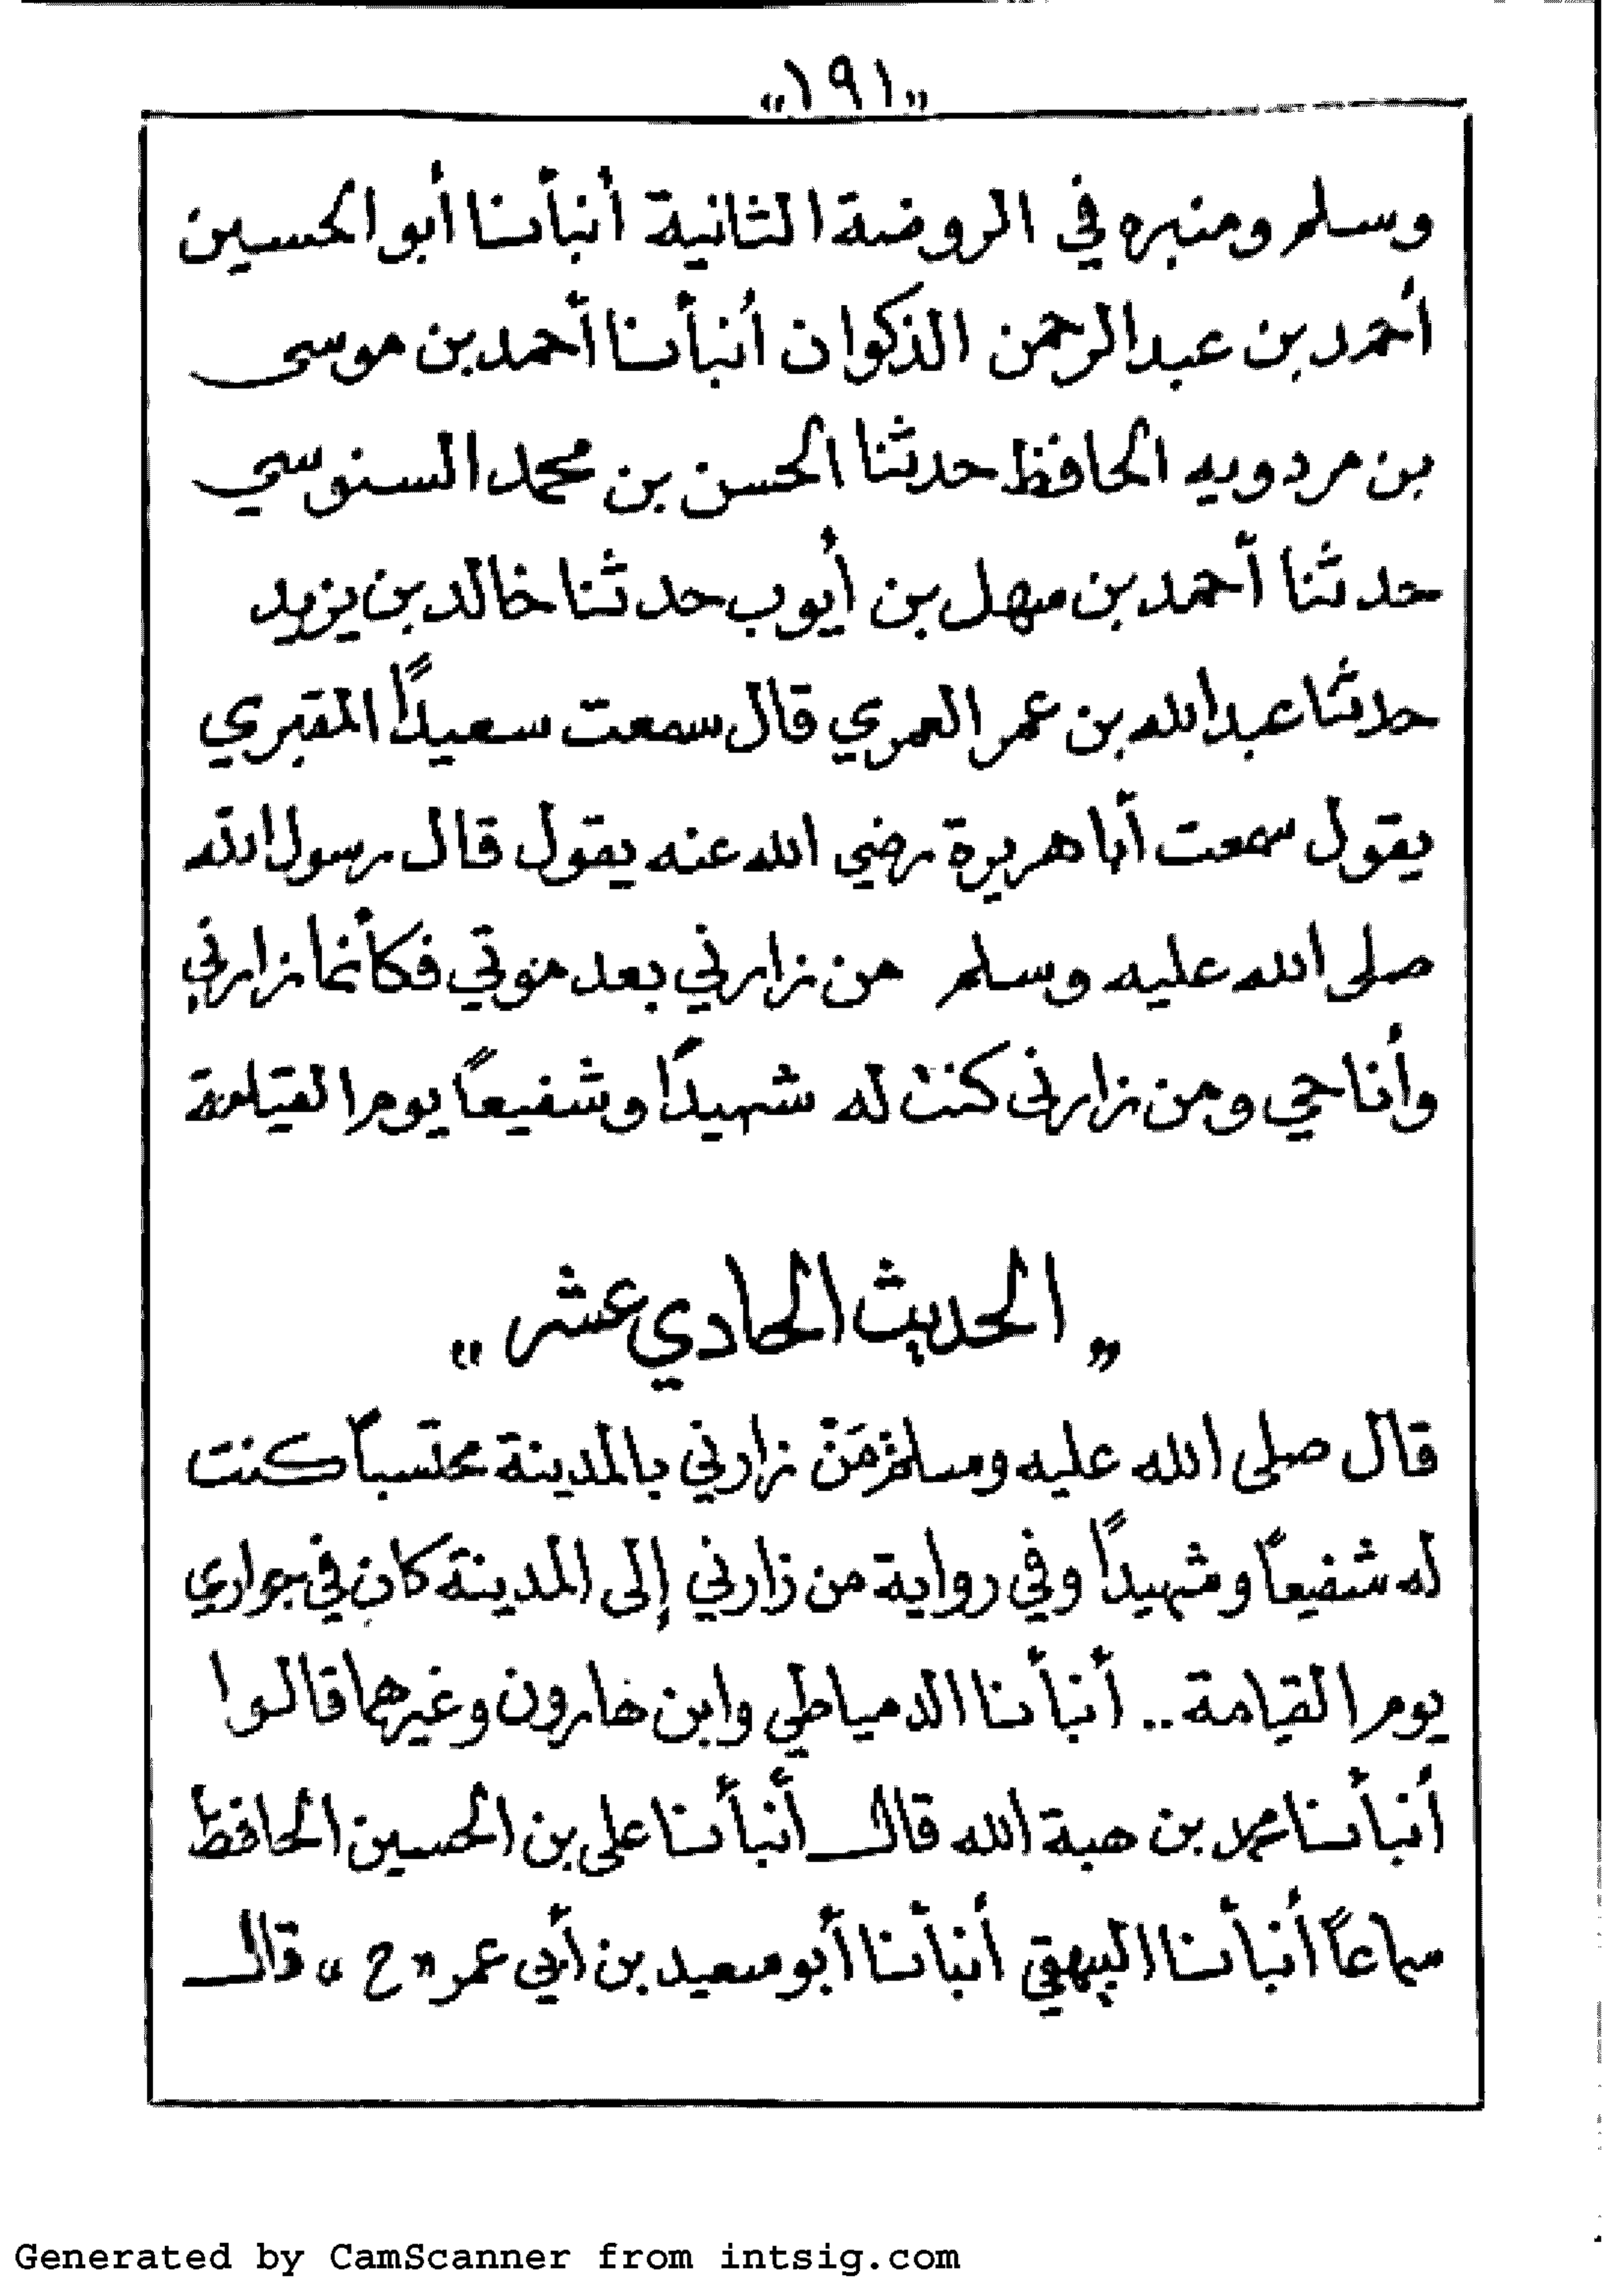 «١٩١»
وسلم ومنبره في الروضة الثانية أنبأنا أبو الحسين
أحمد بن عبد الرحمن الذكوان أنبأنا أحمد بن موسى
بن مردويه الحافظ حدثنا الحسن بن محمد السنوسي
حدثنا أحمد بن سهل بن أيوب حدثنا خالد بن يزيد
حدثنا عبد الله بن عمر العمري قال سمعت سعيدًا المقبري
يقول سمعت أبا هريرة رضي الله عنه يقول قال رسول الله
صلى الله عليه وسلم من زارني بعد موتي فكأنما زارني
وأنا حي ومن زارني كنت له شهيدًا وشفيعًا يوم القيامة
« الحديث الحادي عشر »
قال صلى الله عليه وسلم مَنْ زارني بالمدينة محتسباً كنت
له شفيعاً وشهيداً وفي رواية من زارني إلى المدينة كان في جواري
يوم القيامة .. أنبأنا الدمياطي وابن هارون وغيرهما قالوا
أنبأنا محمد بن هبة الله قال أنبأنا علي بن الحسين الحافظ
سماعاً أنبأنا البيهقي أنبأنا أبو سعيد بن أبي عمر « ح » قال
Generated by CamScanner from intsig.com